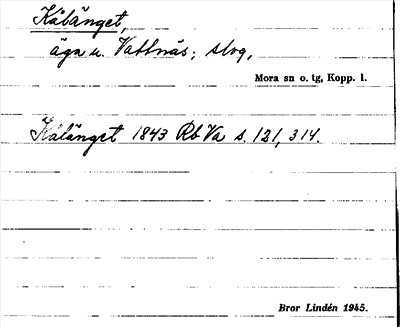 Kålänget,
äga u. Vattnäs; skog,
Mora sn o. tg, Kopp. l.
Kålänget 1843 Rb Va s. 121, 314.
Bror Lindén 1945.